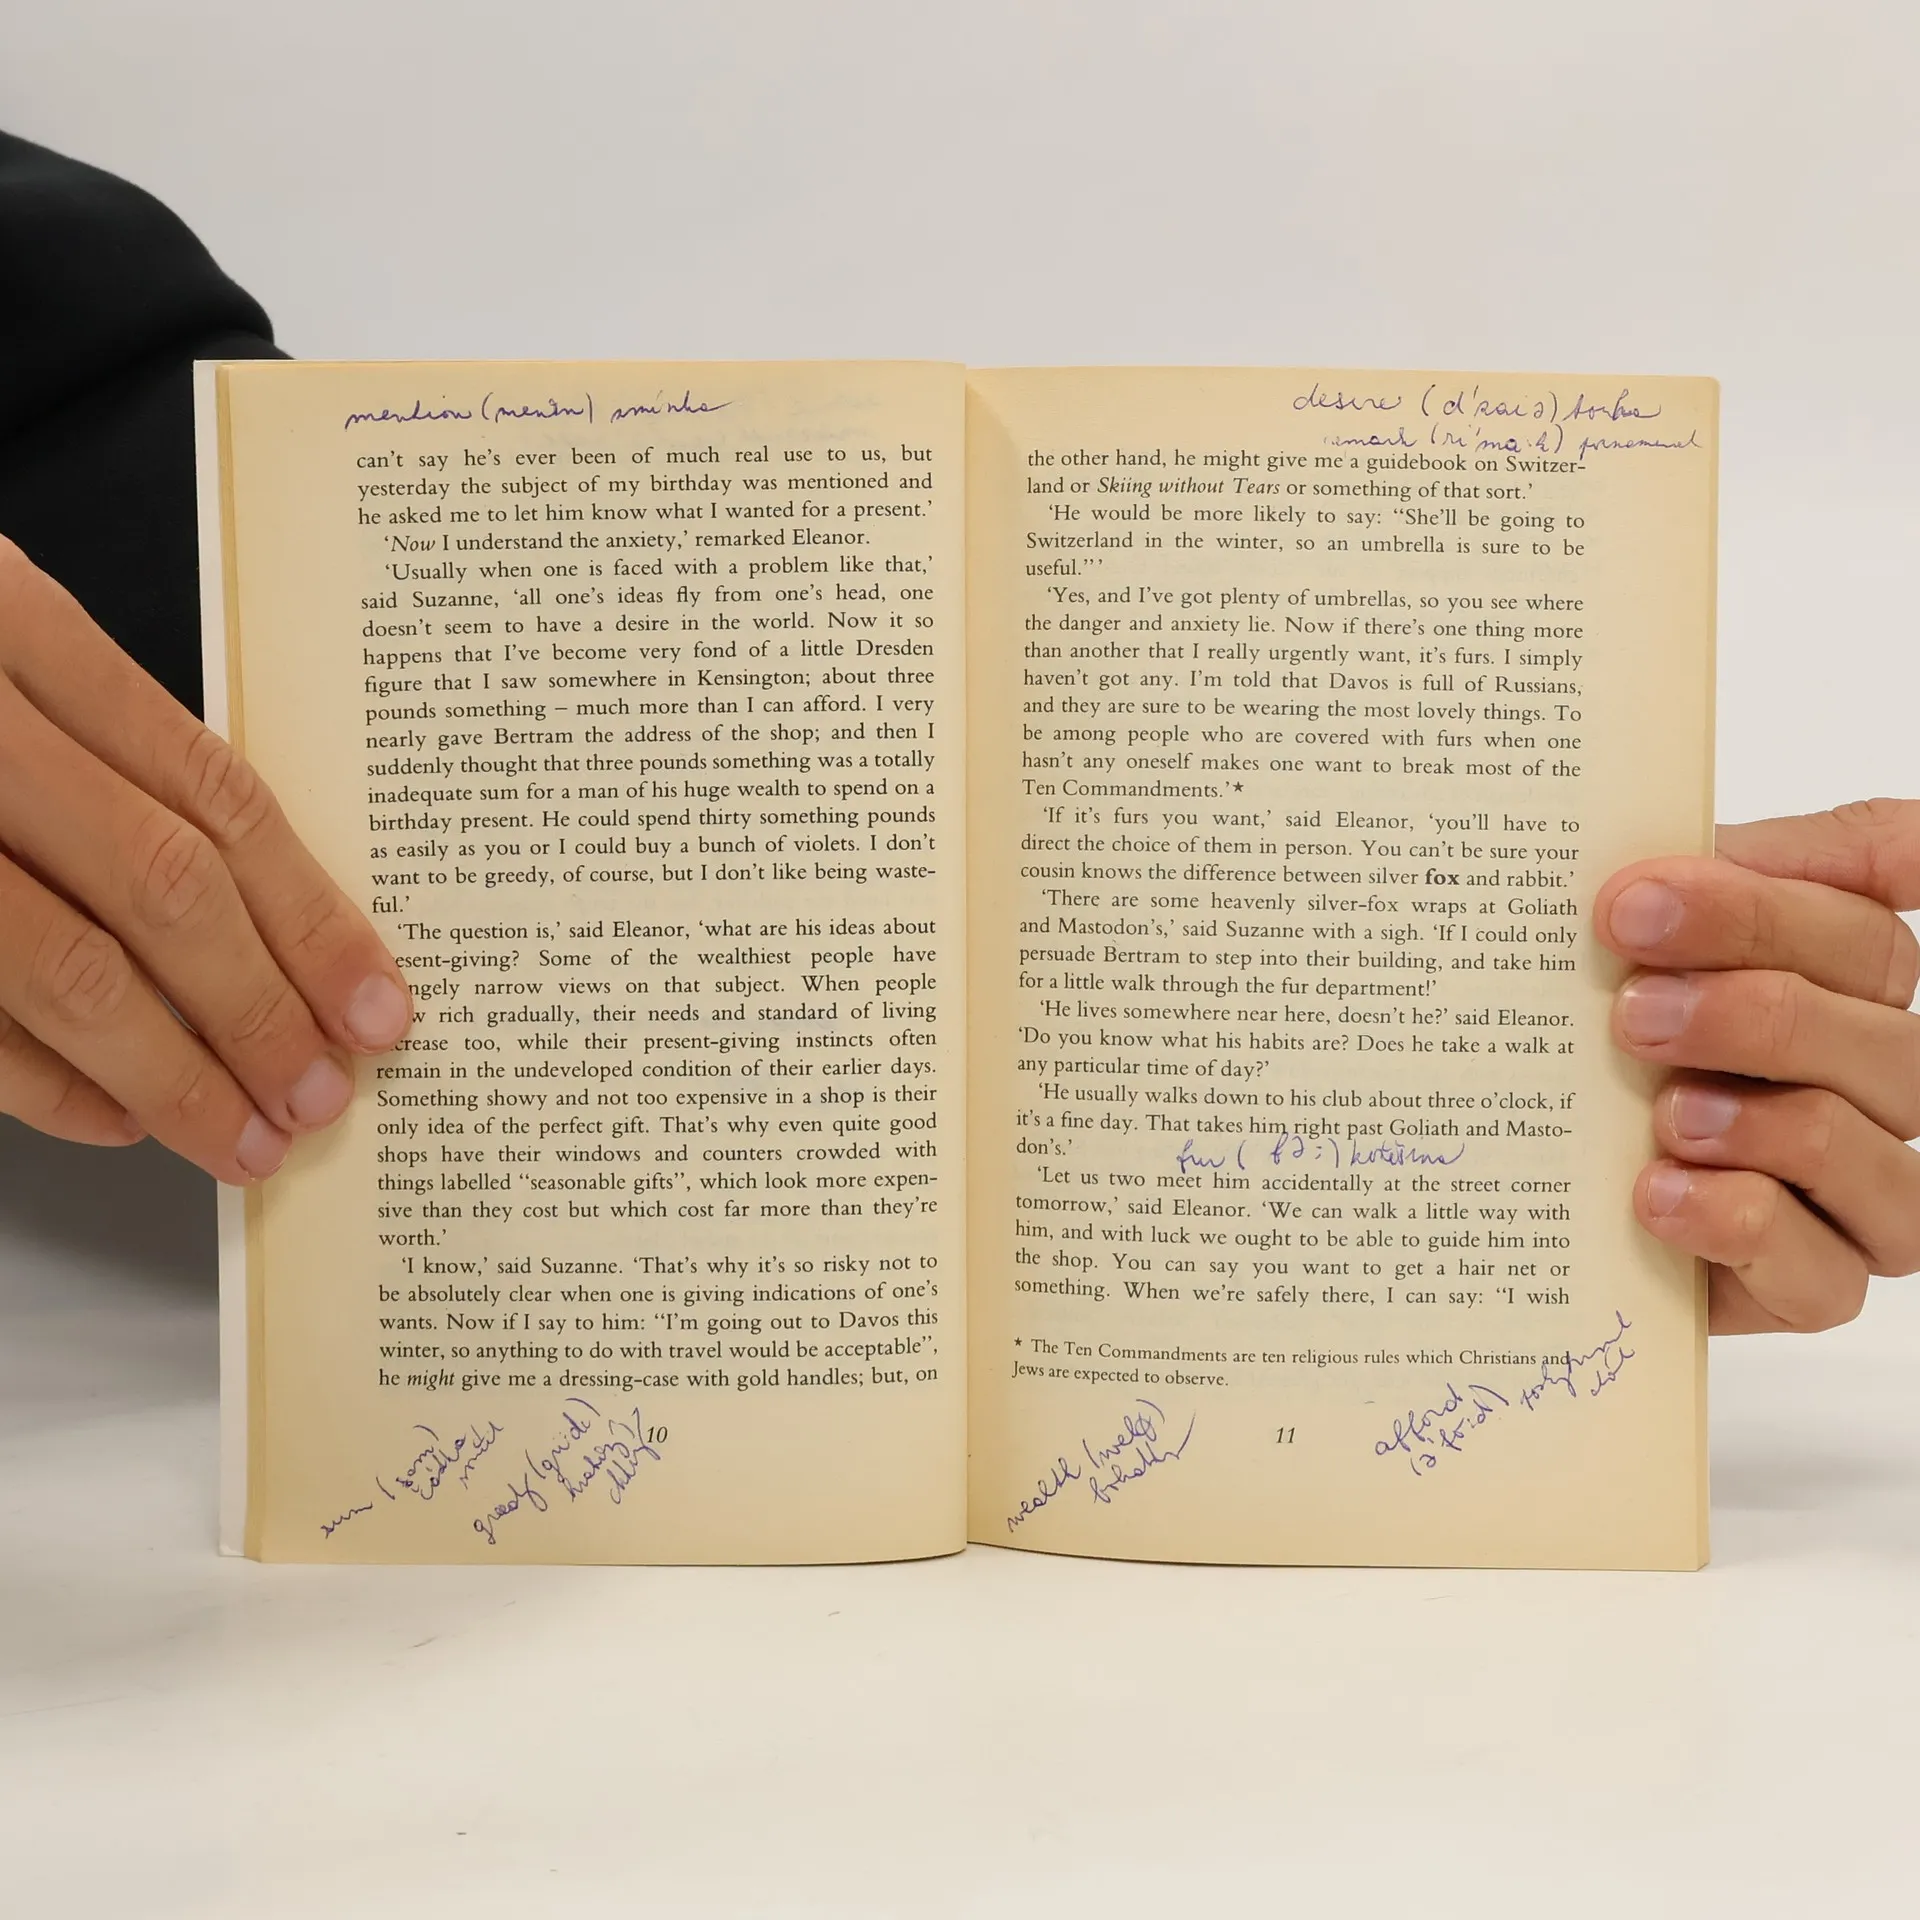 mention (menšn) zmínka
can't say he's ever been of much real use to us, but
yesterday the subject of my birthday was mentioned and
he asked me to let him know what I wanted for a present.'
‘Now I understand the anxiety,’ remarked Eleanor.
‘Usually when one is faced with a problem like that,’
said Suzanne, ‘all one's ideas fly from one's head, one
doesn't seem to have a desire in the world. Now it so
happens that I've become very fond of a little Dresden
figure that I saw somewhere in Kensington; about three
pounds something – much more than I can afford. I very
nearly gave Bertram the address of the shop; and then I
suddenly thought that three pounds something was a totally
inadequate sum for a man of his huge wealth to spend on a
birthday present. He could spend thirty something pounds
as easily as you or I could buy a bunch of violets. I don't
want to be greedy, of course, but I don't like being waste-
ful.’
‘The question is,’ said Eleanor, ‘what are his ideas about
esent-giving? Some of the wealthiest people have
ngely narrow views on that subject. When people
w rich gradually, their needs and standard of living
crease too, while their present-giving instincts often
remain in the undeveloped condition of their earlier days.
Something showy and not too expensive in a shop is their
only idea of the perfect gift. That's why even quite good
shops have their windows and counters crowded with
things labelled “seasonable gifts”, which look more expen-
sive than they cost but which cost far more than they're
worth.’
‘I know,’ said Suzanne. ‘That's why it's so risky not to
be absolutely clear when one is giving indications of one's
wants. Now if I say to him: “I'm going out to Davos this
winter, so anything to do with travel would be acceptable”,
he might give me a dressing-case with gold handles; but, on
sum (sam)
greedy (gri:di)
10
desire (d'zaiə) touha
remark (ri'ma:k) poznamenat
the other hand, he might give me a guidebook on Switzer-
land or Skiing without Tears or something of that sort.’
‘He would be more likely to say: “She'll be going to
Switzerland in the winter, so an umbrella is sure to be
useful.”’
‘Yes, and I've got plenty of umbrellas, so you see where
the danger and anxiety lie. Now if there's one thing more
than another that I really urgently want, it's furs. I simply
haven't got any. I'm told that Davos is full of Russians,
and they are sure to be wearing the most lovely things. To
be among people who are covered with furs when one
hasn't any oneself makes one want to break most of the
Ten Commandments.’★
‘If it's furs you want,’ said Eleanor, ‘you'll have to
direct the choice of them in person. You can't be sure your
cousin knows the difference between silver fox and rabbit.’
‘There are some heavenly silver-fox wraps at Goliath
and Mastodon's,’ said Suzanne with a sigh. ‘If I could only
persuade Bertram to step into their building, and take him
for a little walk through the fur department!’
‘He lives somewhere near here, doesn't he?’ said Eleanor.
‘Do you know what his habits are? Does he take a walk at
any particular time of day?’
‘He usually walks down to his club about three o'clock, if
it's a fine day. That takes him right past Goliath and Masto-
don's.’
fur (fə:) kožešina
‘Let us two meet him accidentally at the street corner
tomorrow,’ said Eleanor. ‘We can walk a little way with
him, and with luck we ought to be able to guide him into
the shop. You can say you want to get a hair net or
something. When we're safely there, I can say: “I wish
★ The Ten Commandments are ten religious rules which Christians and
Jews are expected to observe.
wealth
afford
(ə'fo:d)
11